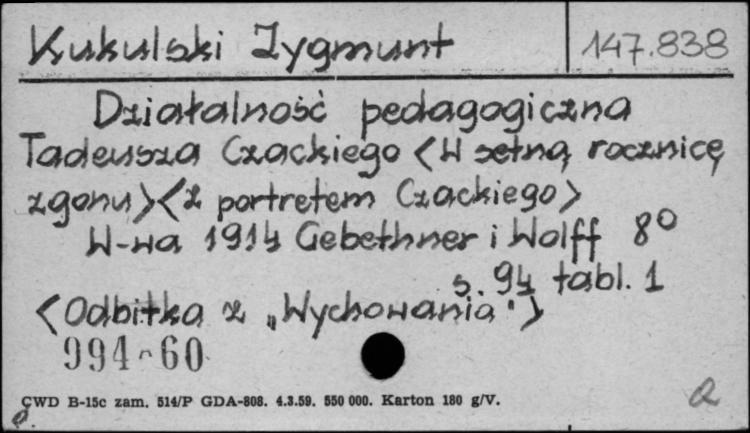 Kukulski Zygmunt 147.838
Działalność pedagogiczna
Tadeusza Czackiego <W setną rocznicę
zgonu> <z portretem Czackiego>
W-wa 1914 Gebethner i Wolff 8°
s. 94 tabl. 1
<Odbitka z „Wychowania">
994-60
CWD B-15c zam. 514/P GDA-808. 4.3.59. 550 000. Karton 180 g/V.